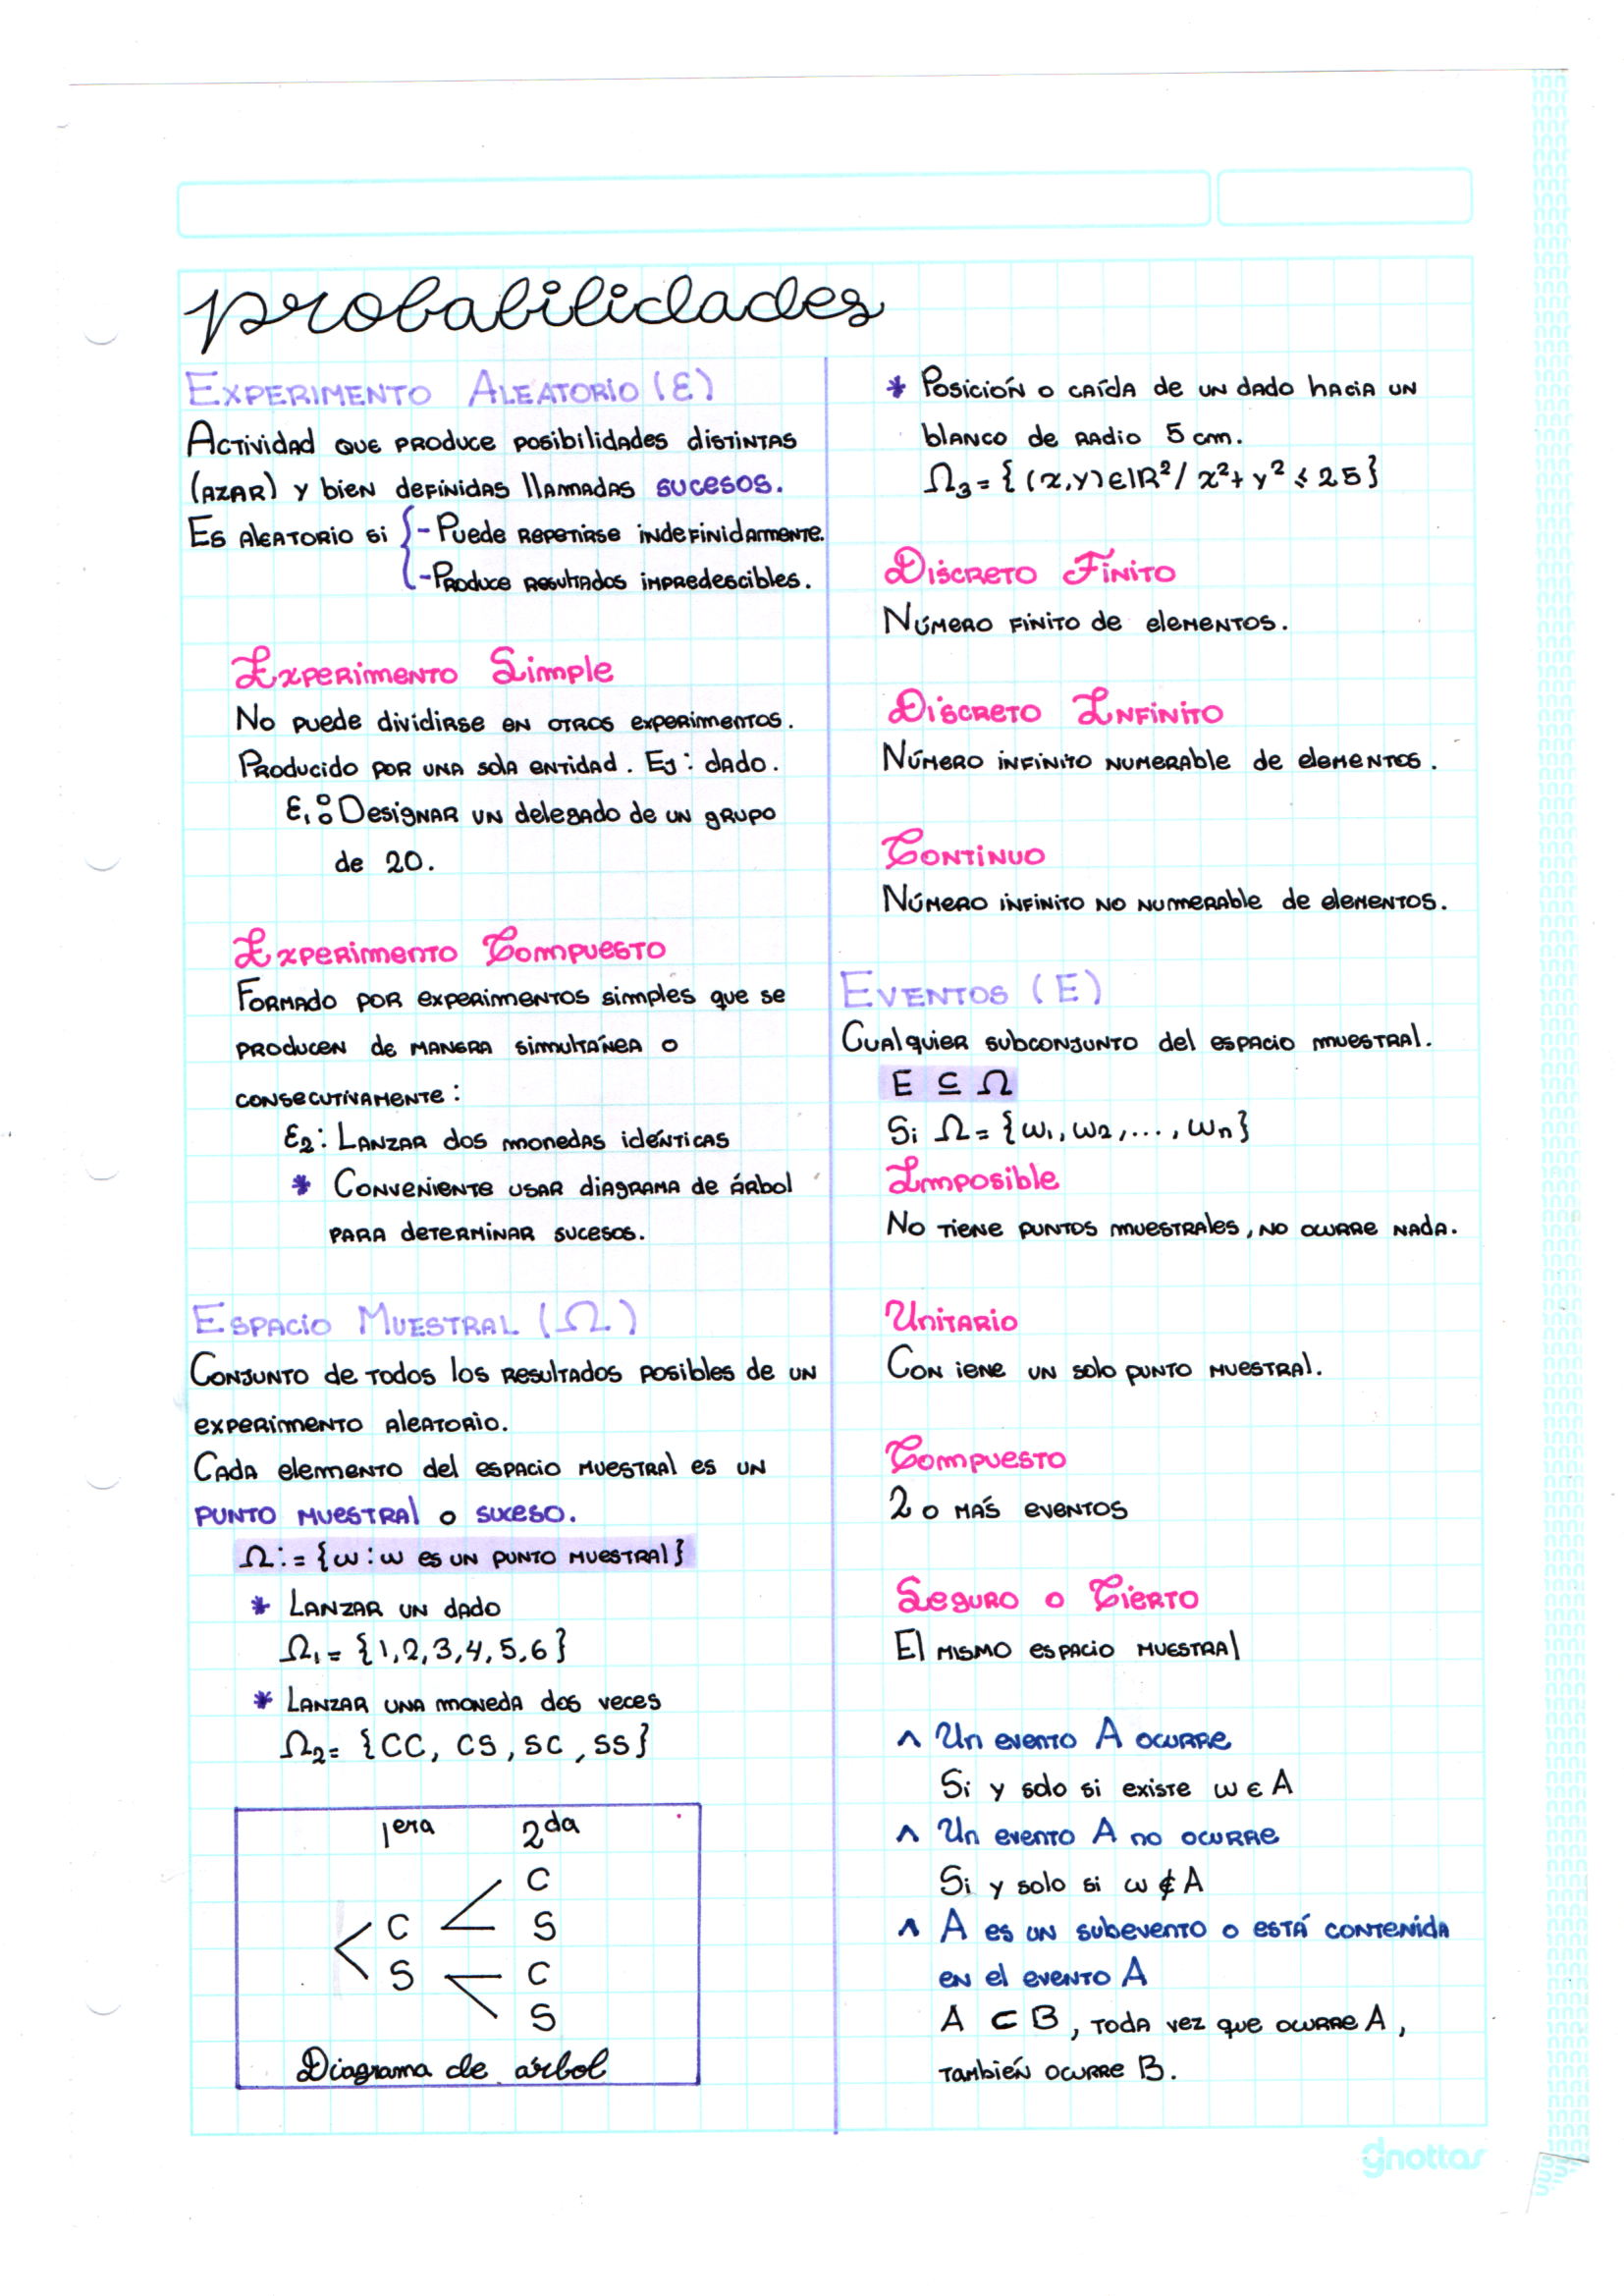 probabilidades
EXPERIMENTO ALEATORIO (ε)
Actividad que produce posibilidades distintas
(azar) y bien definidas llamadas sucesos.
Es aleatorio si { - Puede repetirse indefinidamente.
- Produce resultados impredescibles.
Experimento Simple
No puede dividirse en otros experimentos.
Producido por una sola entidad. Ej: dado.
ε₁: Designar un delegado de un grupo
de 20.
Experimento Compuesto
Formado por experimentos simples que se
producen de manera simultánea o
consecutivamente:
ε₂: Lanzar dos monedas idénticas
* Conveniente usar diagrama de árbol
para determinar sucesos.
ESPACIO MUESTRAL (Ω)
Conjunto de todos los resultados posibles de un
experimento aleatorio.
Cada elemento del espacio muestral es un
punto muestral o suceso.
Ω := {ω : ω es un punto muestral}
* Lanzar un dado
Ω₁ = {1,2,3,4,5,6}
* Lanzar una moneda dos veces
Ω₂ = {CC, CS, SC, SS}
1era 2da
C
C S
S C
S
Diagrama de árbol
* Posición o caída de un dado hacia un
blanco de radio 5 cm.
Ω₃ = {(x,y)∈ℝ² / x² + y² ≤ 25}
Discreto Finito
Número finito de elementos.
Discreto Infinito
Número infinito numerable de elementos.
Continuo
Número infinito no numerable de elementos.
EVENTOS (E)
Cualquier subconjunto del espacio muestral.
E ⊆ Ω
Si Ω = {ω₁, ω₂, ..., ωn}
Imposible
No tiene puntos muestrales, no ocurre nada.
Unitario
Con iene un solo punto muestral.
Compuesto
2 o más eventos
Seguro o Cierto
El mismo espacio muestral
^ Un evento A ocurre
Si y solo si existe ω ∈ A
^ Un evento A no ocurre
Si y solo si ω ∉ A
^ A es un subevento o está contenida
en el evento A
A ⊂ B, toda vez que ocurre A,
también ocurre B.
gnottas